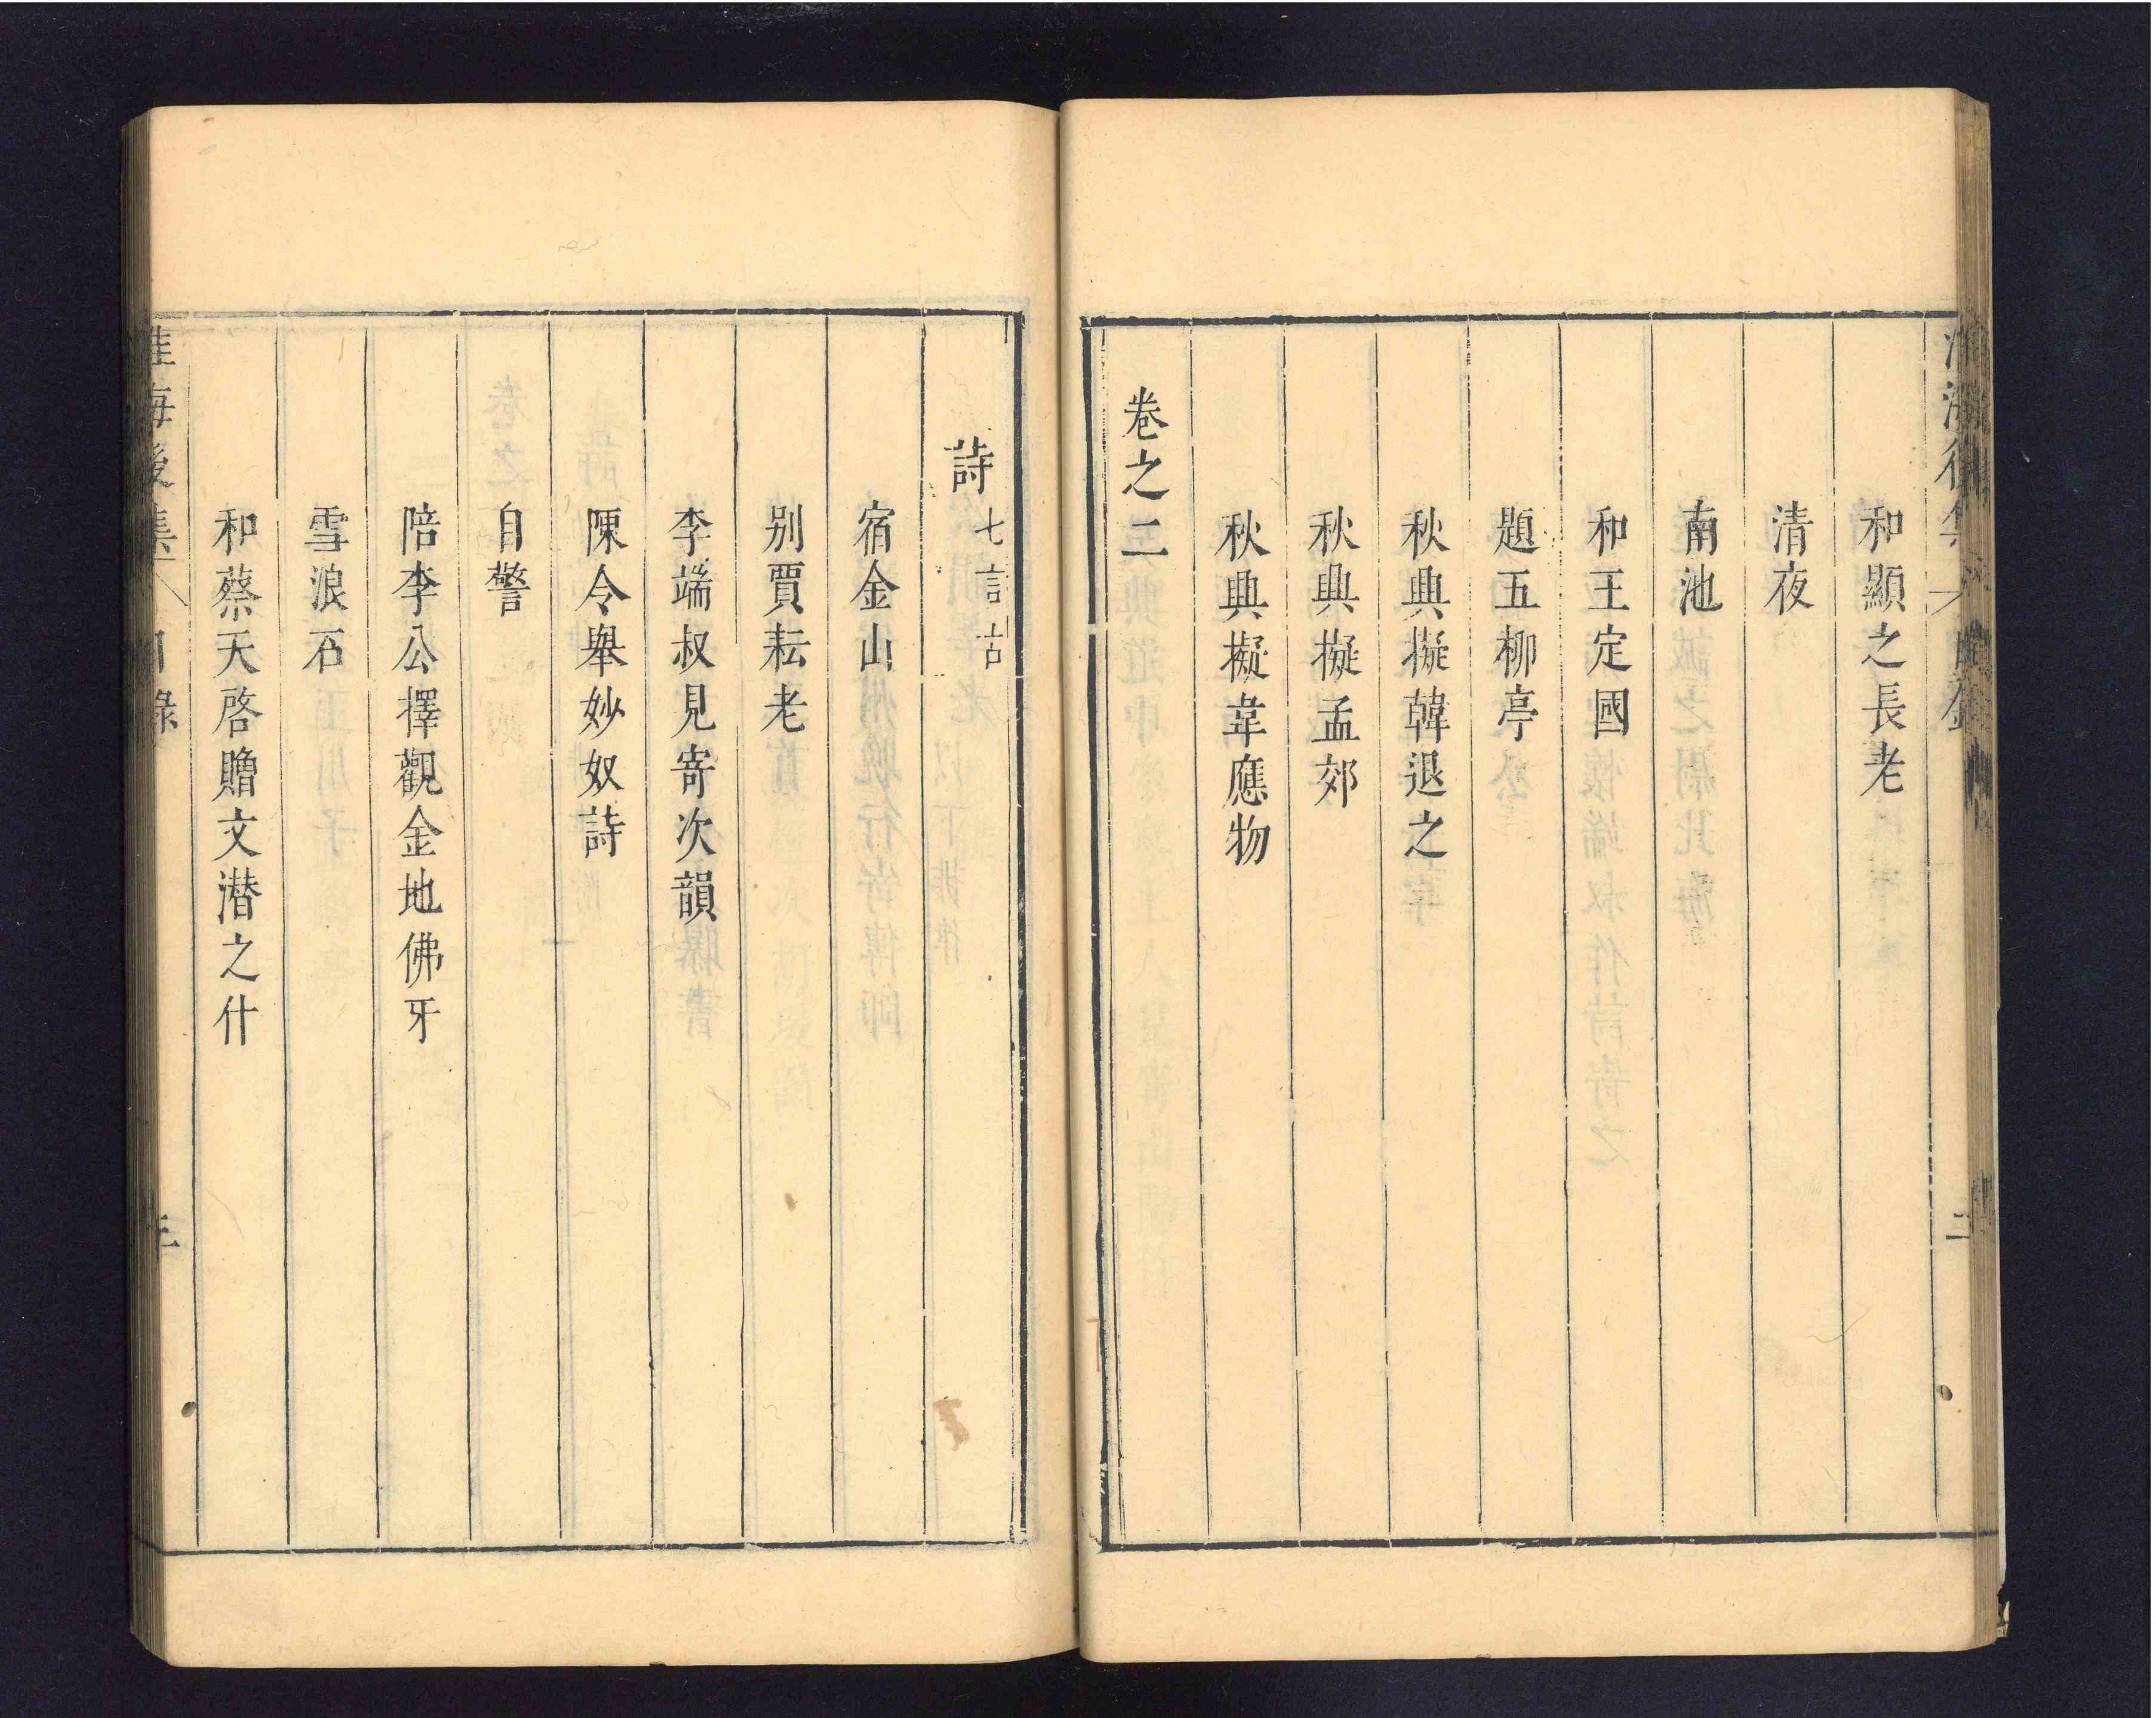 和顯之長老
清夜
南池
和王定國
題五柳亭
秋興擬韓退之
秋興擬孟郊
秋興擬韋應物
卷之二
詩七言古
宿金山
别賈耘老
李端叔見寄次韻
陳令舉妙奴詩
自警
陪李公擇觀金地佛牙
雪浪石
和蔡天啓贈文潜之什
淮海後集 目錄 三